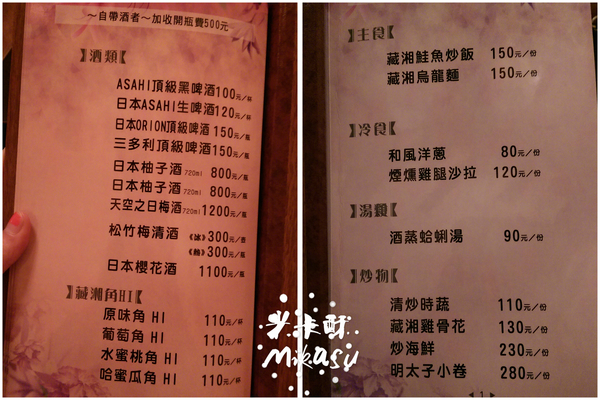 ～自帶酒者～加收開瓶費500元~
】酒類【
ASAHI頂級黑啤酒100元/杯
日本ASAHI生啤酒120元/杯
日本ORION頂級啤酒150元/瓶
三多利頂級啤酒150元/瓶
日本柚子酒720ml 800元/瓶
日本柚子酒720ml 800元/瓶
天空之日梅酒720ml 1200元/瓶
松竹梅清酒《冰》300元/壺
《熱》300元/瓶
日本櫻花酒 1100元/瓶
】藏湘角HI【
原味角 HI 110元/杯
葡萄角 HI 110元/杯
水蜜桃角 HI 110元/杯
哈蜜瓜角 HI 110元/杯
】主食【
藏湘鮭魚炒飯 150元/份
藏湘烏龍麵 150元/份
】冷食【
和風洋蔥 80元/份
煙燻雞腿沙拉 120元/份
】湯類【
酒蒸蛤蜊湯 90元/份
】炒物【
清炒時蔬 110元/份
藏湘雞骨花 130元/份
炒海鮮 230元/份
明太子小卷 280元/份
1
米卡酥
Mikasu